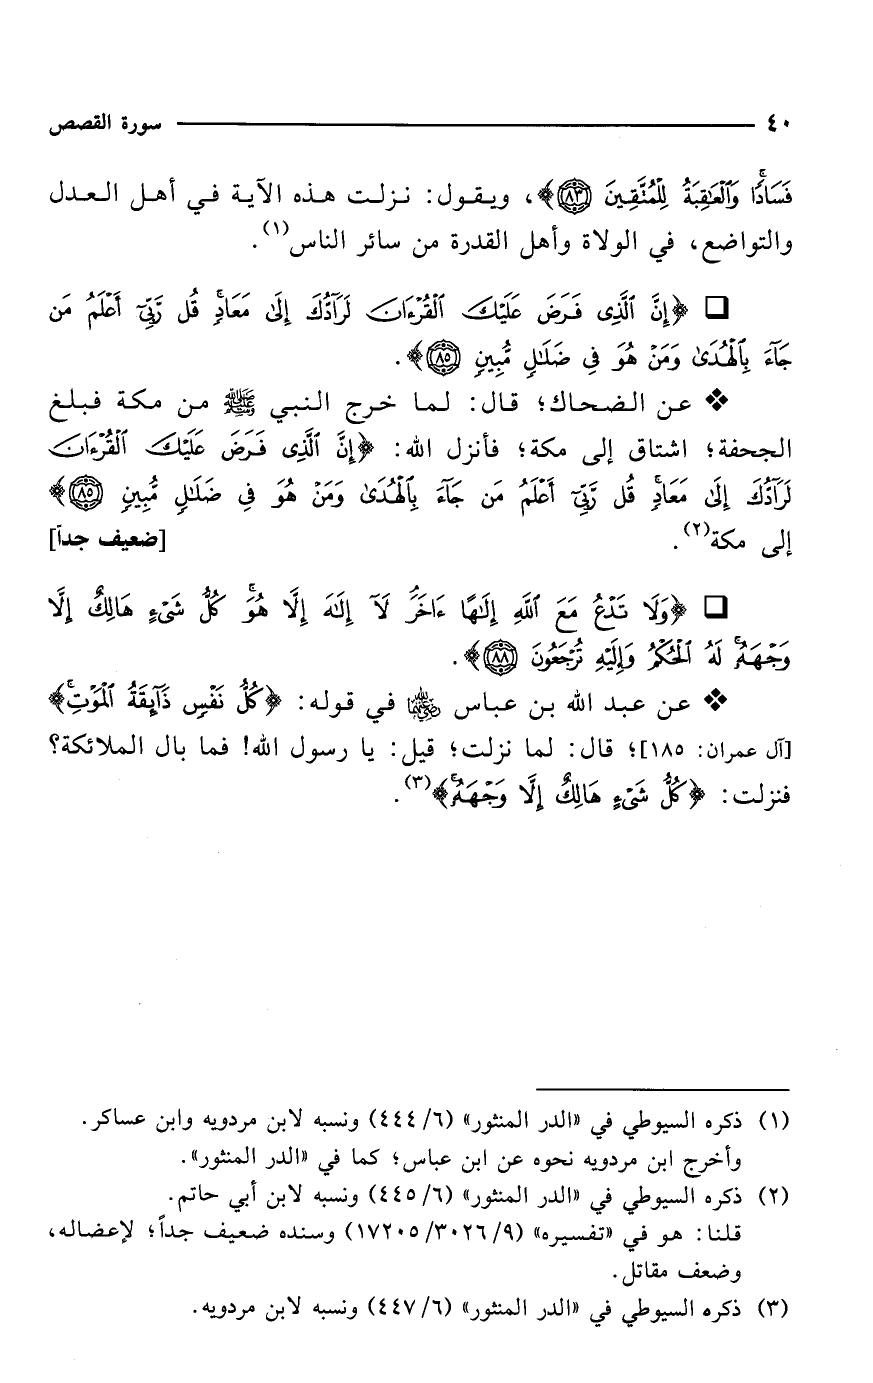 ٤٠ سورة القصص
فَسَادًا ۚ وَٱلْعَـٰقِبَةُ لِلْمُتَّقِينَ ﴿٨٣﴾﴾، ويقول: نزلت هذه الآية في أهل العدل
والتواضع، في الولاة وأهل القدرة من سائر الناس(١).
❑ ﴿إِنَّ ٱلَّذِى فَرَضَ عَلَيْكَ ٱلْقُرْءَانَ لَرَآدُّكَ إِلَىٰ مَعَادٍ ۚ قُل رَّبِّىٓ أَعْلَمُ مَن
جَآءَ بِٱلْهُدَىٰ وَمَنْ هُوَ فِى ضَلَـٰلٍ مُّبِينٍ ﴿٨٥﴾﴾.
❖ عن الضحاك؛ قال: لما خرج النبي ﷺ من مكة فبلغ
الجحفة؛ اشتاق إلى مكة؛ فأنزل الله: ﴿إِنَّ ٱلَّذِى فَرَضَ عَلَيْكَ ٱلْقُرْءَانَ
لَرَآدُّكَ إِلَىٰ مَعَادٍ ۚ قُل رَّبِّىٓ أَعْلَمُ مَن جَآءَ بِٱلْهُدَىٰ وَمَنْ هُوَ فِى ضَلَـٰلٍ مُّبِينٍ ﴿٨٥﴾﴾
إلى مكة(٢). [ضعيف جداً]
❑ ﴿وَلَا تَدْعُ مَعَ ٱللَّهِ إِلَـٰهًا ءَاخَرَ ۘ لَآ إِلَـٰهَ إِلَّا هُوَ ۚ كُلُّ شَىْءٍ هَالِكٌ إِلَّا
وَجْهَهُۥ ۚ لَهُ ٱلْحُكْمُ وَإِلَيْهِ تُرْجَعُونَ ﴿٨٨﴾﴾.
❖ عن عبد الله بن عباس رضي الله عنهما في قوله: ﴿كُلُّ نَفْسٍ ذَآئِقَةُ ٱلْمَوْتِ ۗ﴾
[آل عمران: ١٨٥]؛ قال: لما نزلت؛ قيل: يا رسول الله! فما بال الملائكة؟
فنزلت: ﴿كُلُّ شَىْءٍ هَالِكٌ إِلَّا وَجْهَهُۥ ۚ﴾(٣).
(١) ذكره السيوطي في «الدر المنثور» (٦/ ٤٤٤) ونسبه لابن مردويه وابن عساكر.
وأخرج ابن مردويه نحوه عن ابن عباس؛ كما في «الدر المنثور».
(٢) ذكره السيوطي في «الدر المنثور» (٦/ ٤٤٥) ونسبه لابن أبي حاتم.
قلنا: هو في «تفسيره» (٩/ ٣٠٢٦/ ١٧٢٠٥) وسنده ضعيف جداً؛ لإعضاله،
وضعف مقاتل.
(٣) ذكره السيوطي في «الدر المنثور» (٦/ ٤٤٧) ونسبه لابن مردويه.